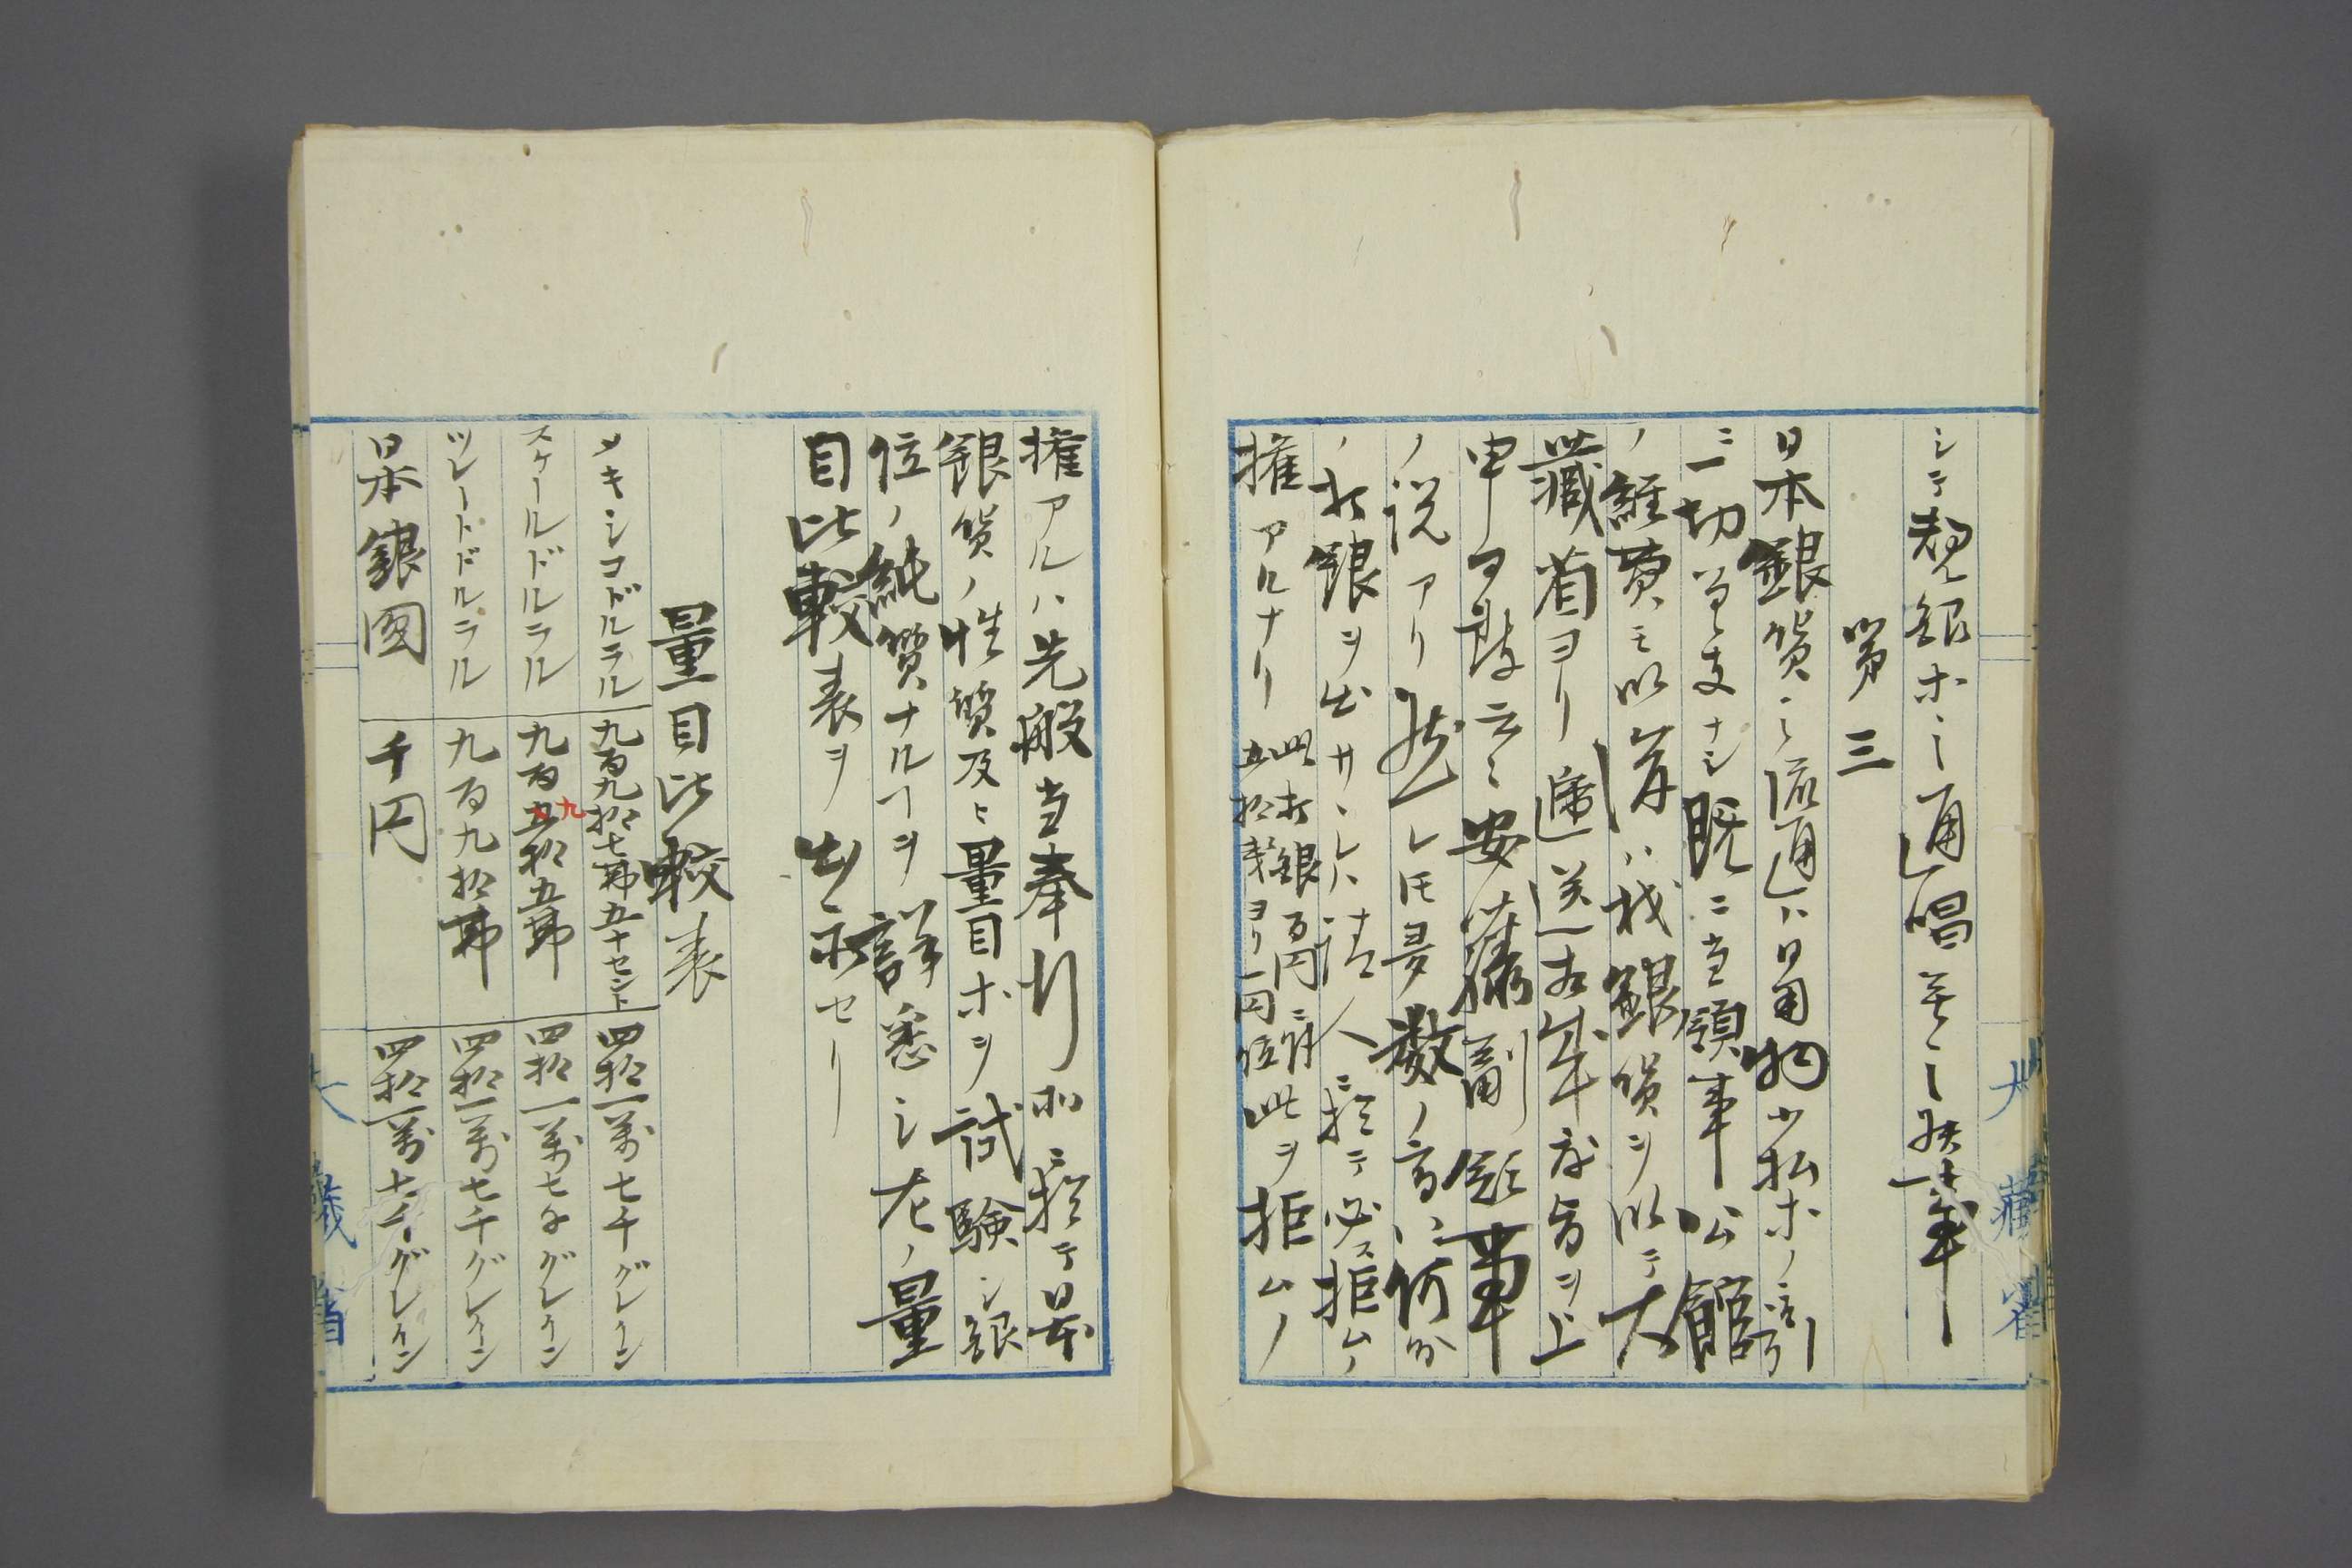 シテ規銀ホニ通唱
第三
日本銀貨之流通ハ日用物小払ホノ
ニ一切差支ナシ既ニ当領事公館
ノ経費モ以前ハ我銀貨ヲ以テ大
蔵省ヨリ逓送
申ヲ致云々安藤副領事
ノ説アリ然レ𪜈多数ノ高ハ何分
ノ打銀ヲ出サヽレハ清人ニ於テ必ス拒ムノ
権アルナリ
此打銀百円ニ付
五拾銭ヨリ一円位此ヲ拒ムノ
権アルハ先般当奉行所ニ於テ日本
銀貨ノ性質及ヒ量目ホヲ試験シ銀
位ノ純質ナルヿヲ詳悉シ左ノ量
目比較表ヲ出示セリ
量目比較表
メキシコドルラル 九百九拾七弗五十セント 四拾一万七千グレイン
スケールドルラル 九百五九拾五弗 四拾一万七千グレイン
ツレートドルラル 九百九拾弗 四拾一万七千グレイン
日本銀圓 千円 四拾一万七千グレイン
大蔵省
大蔵省